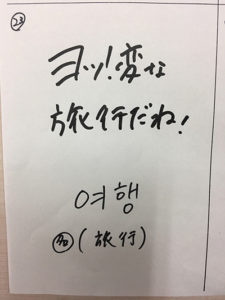 ㉓
ヨッ!変な
旅行だね!
여행
㊔(旅行)